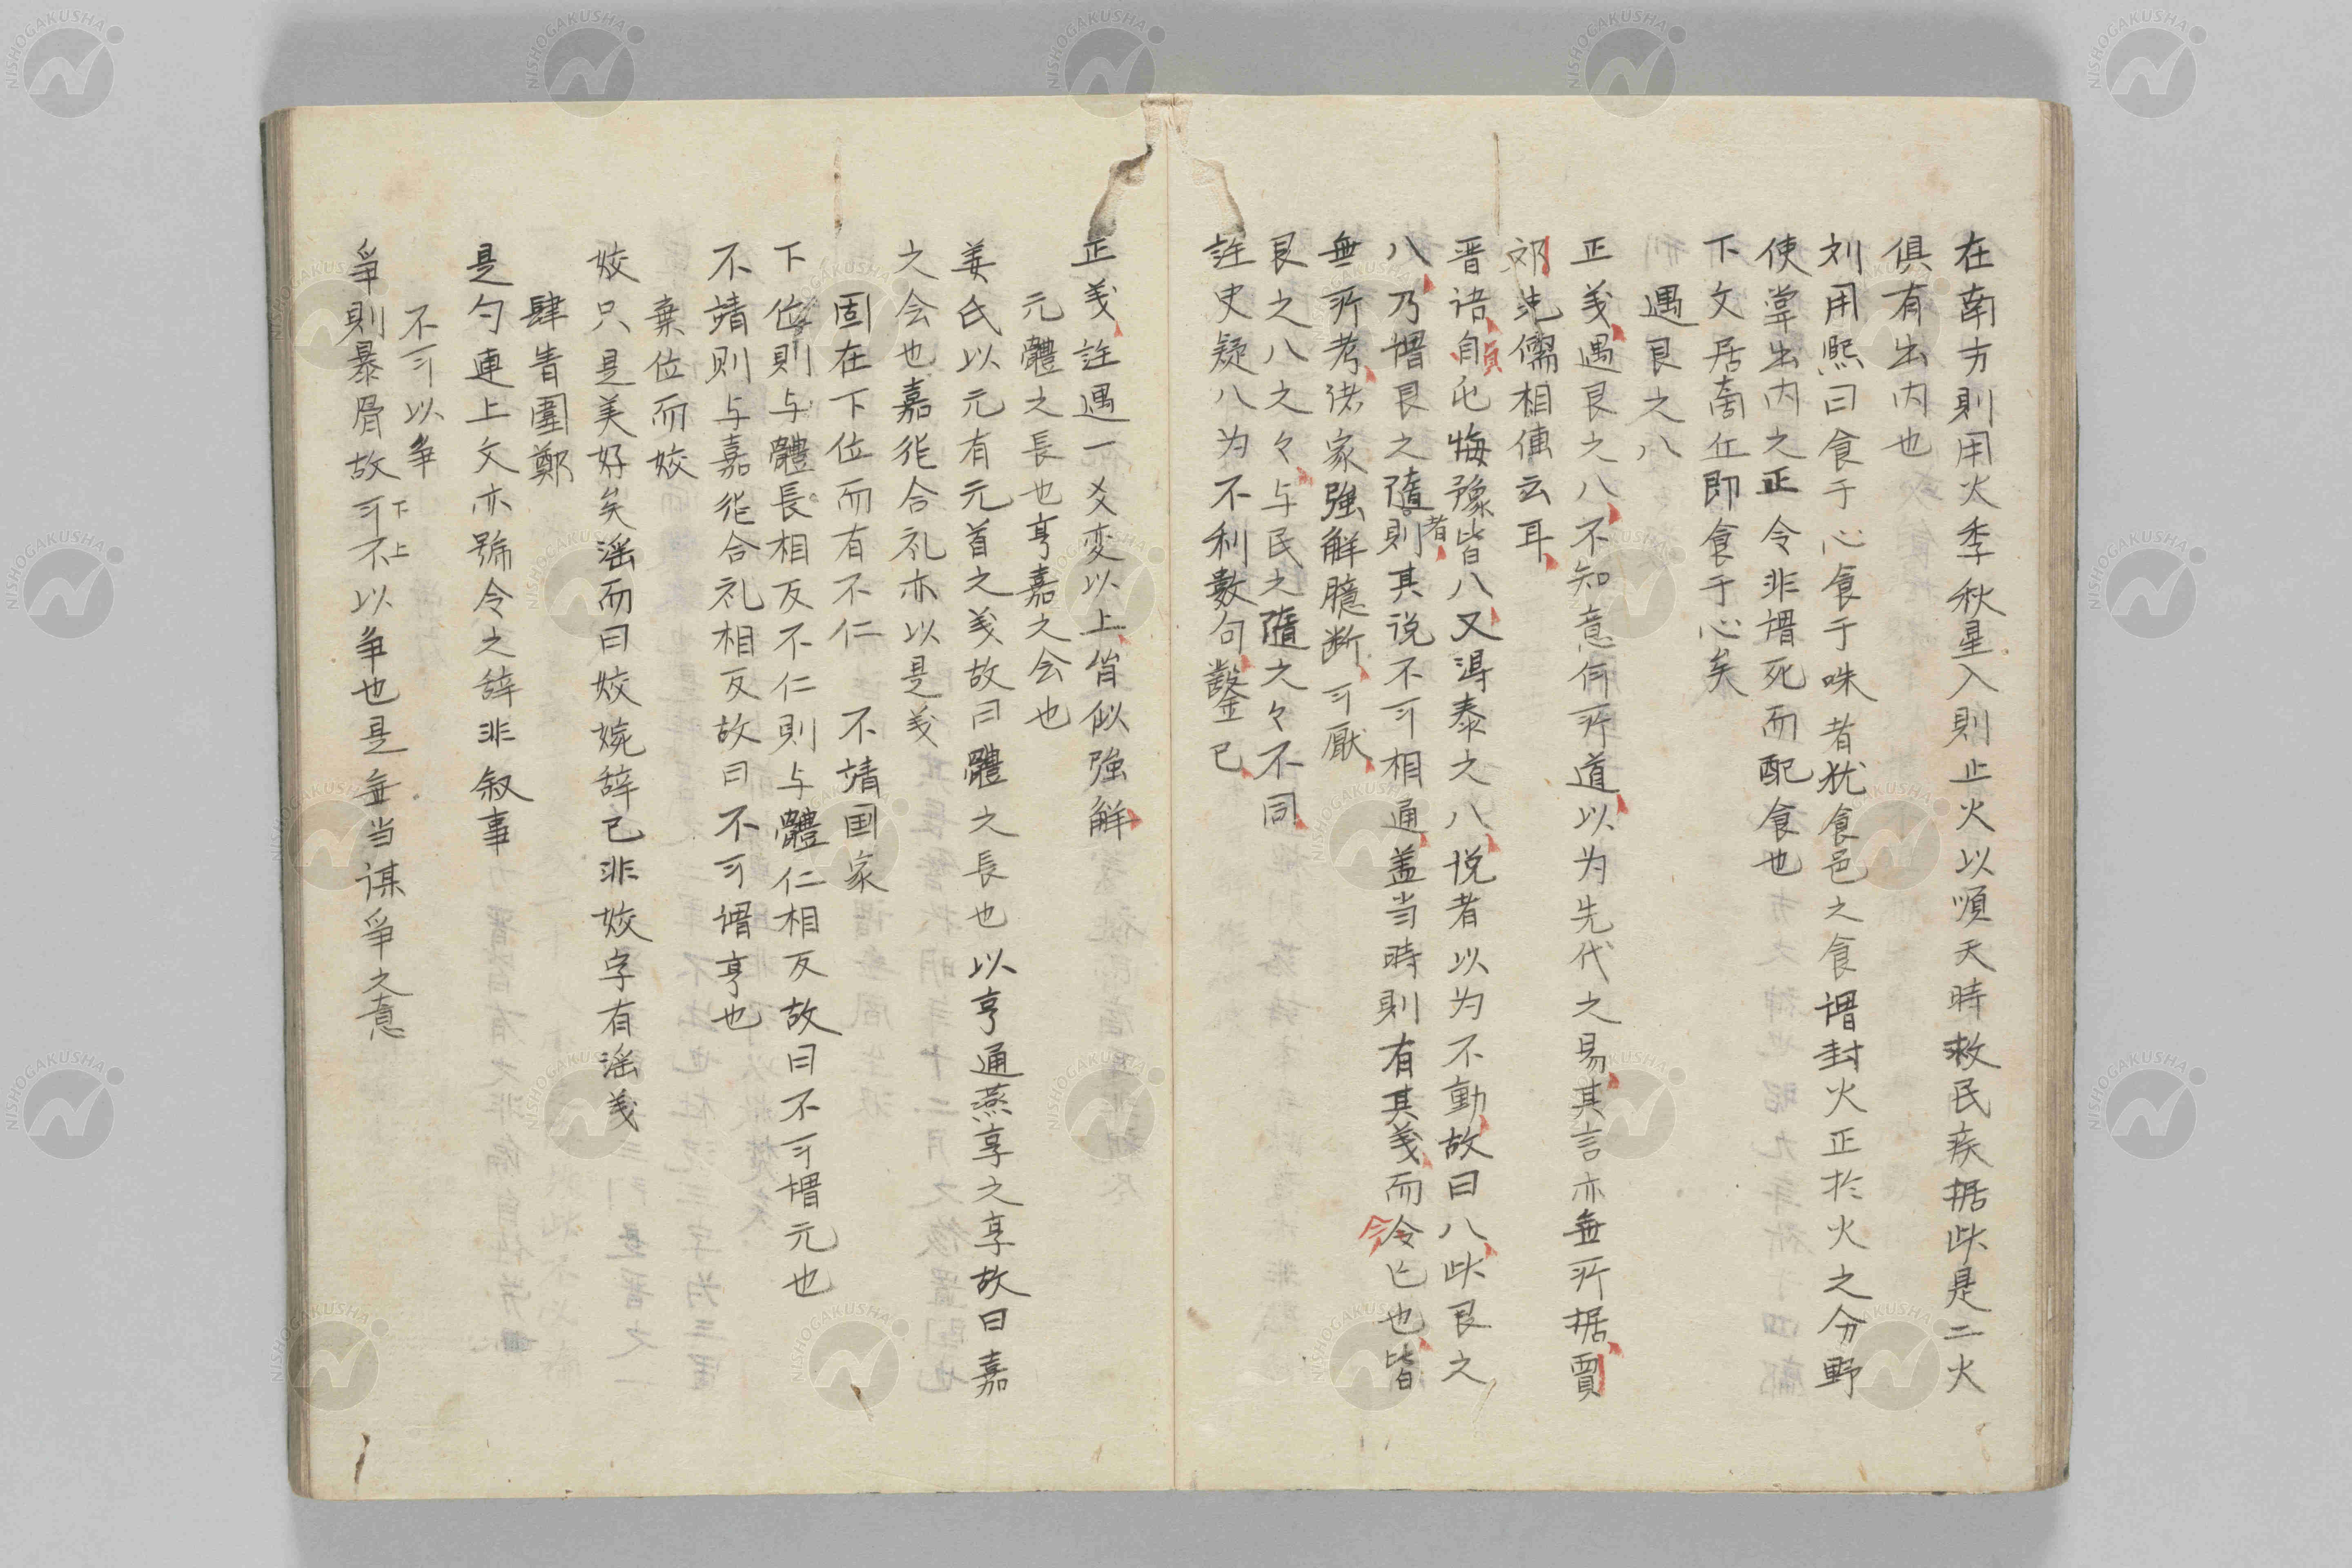 在南方則用火季秋星入則止火以順天時救民疾据此是二火
俱有出内也
刘用熙曰食于心食于咮者犹食邑之食謂封火正於火之分野
使掌出内之正令非謂死而配食也
下文居商丘即食于心矣
遇艮之八
正義遇艮之八不知意何所道以为先代之易其言亦無所据賈
郑先儒相傳云耳
晋语自貞屯悔豫皆八又得泰之八说者以为不動故曰八此艮之
八乃謂艮之隨則者其说不可相通盖当時則有其義而今亡也皆
無所考诸家強解臆断可厭
艮之八之々与民之隨之々不同
註史疑八为不利數句鑿已
正義註遇一爻变以上皆似強解
元體之長也亨嘉之会也
姜氏以元有元首之義故曰體之長也以亨通燕享之享故曰嘉
之会也嘉能合礼亦以是義
固在下位而有不仁 不靖国家
下位則与體長相反不仁則与體仁相反故曰不可謂元也
不靖则与嘉能合礼相反故曰不可謂亨也
棄位而姣
姣只是美好矣滛而曰姣婉辞已非姣字有滛義
肆眚圍鄭
是勺連上文亦號令之辞非叙事
不可以争
爭則暴骨故可下不上以争也是無当谋爭之意
NISHOGAKUSHA